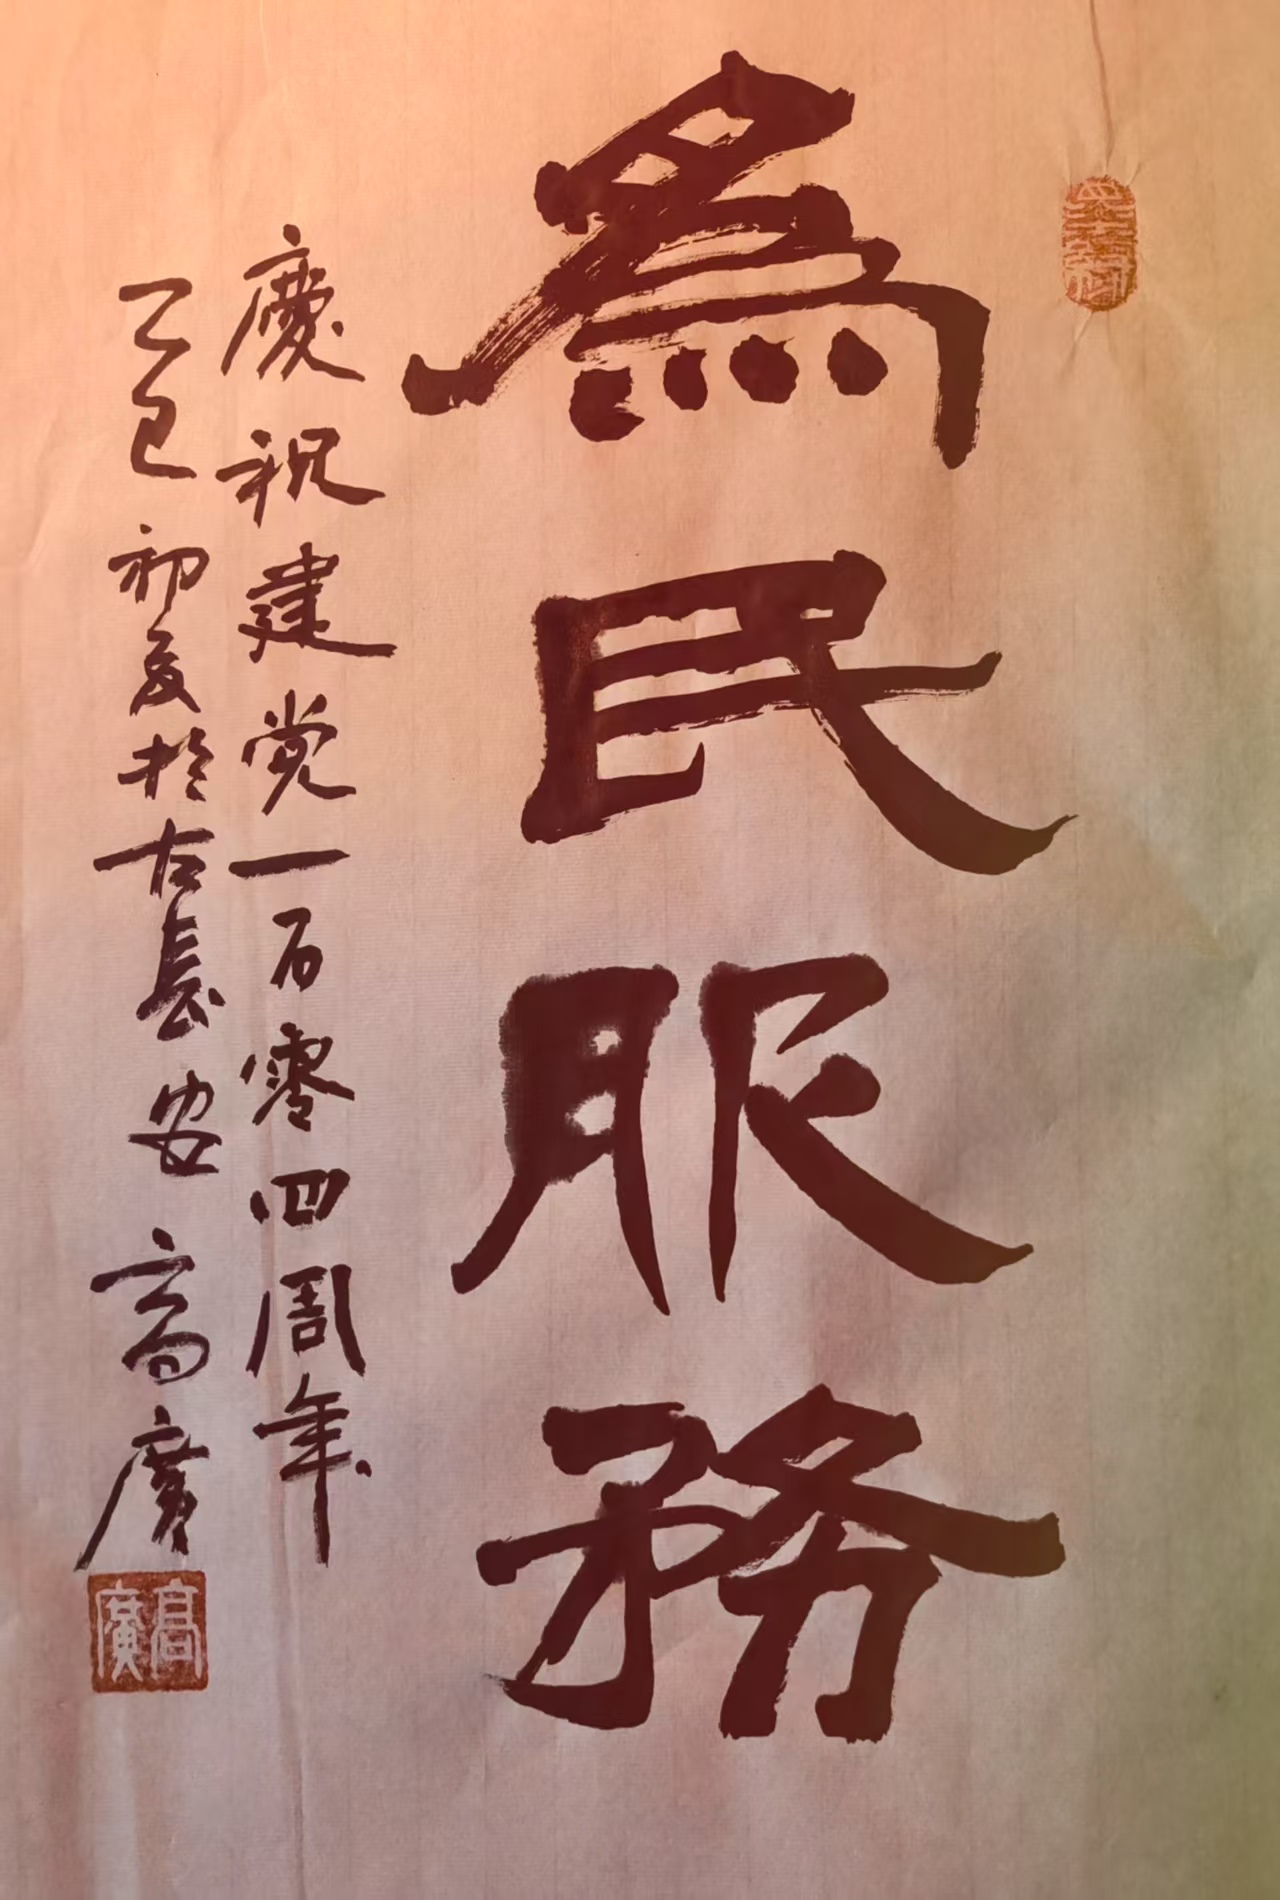 為民服務
慶祝建党一百零四周年
乙巳初夏於古長安高廣
高廣